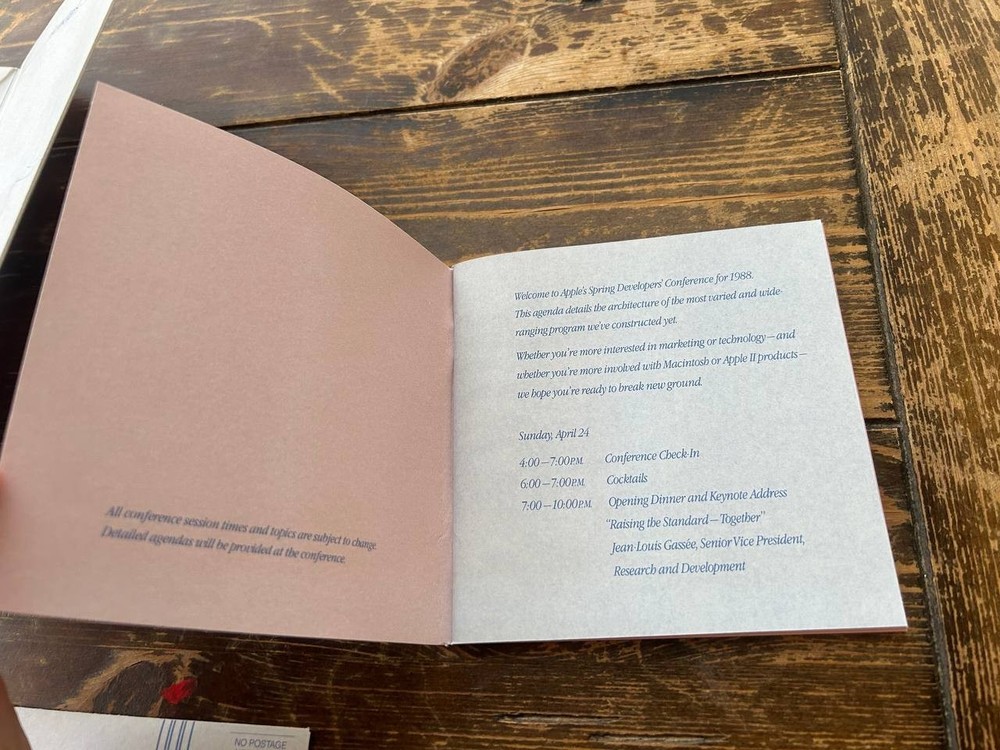 All conference session times and topics are subject to change.
Detailed agendas will be provided at the conference.
Welcome to Apple's Spring Developers' Conference for 1988.
This agenda details the architecture of the most varied and wide-
ranging program we've constructed yet.
Whether you're more interested in marketing or technology—and
whether you're more involved with Macintosh or Apple II products—
we hope you're ready to break new ground.
Sunday, April 24
4:00—7:00P.M. Conference Check-In
6:00—7:00P.M. Cocktails
7:00—10:00P.M. Opening Dinner and Keynote Address
"Raising the Standard—Together"
Jean-Louis Gassée, Senior Vice President,
Research and Development
NO POSTAGE